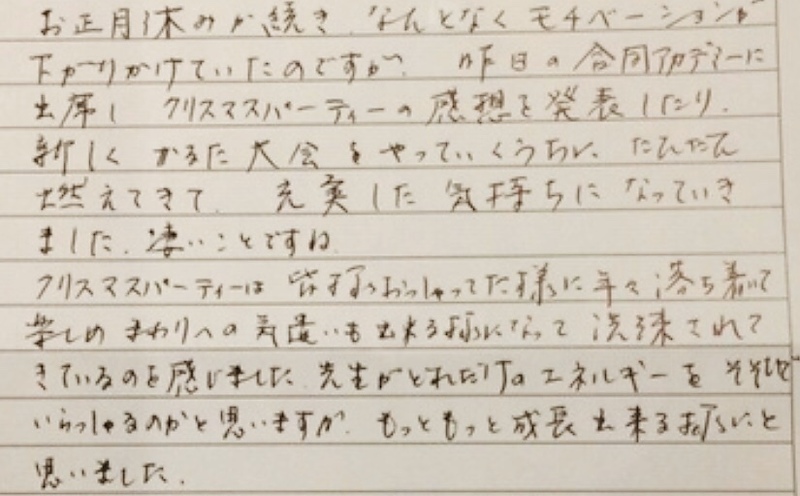 お正月休みが続き、なんとなくモチベーションが
下がりかけていたのですが、昨日の合同アカデミーに
出席し クリスマスパーティーの感想を発表したり、
新しく かるた大会をやっていくうちに、だんだん
燃えてきて、充実した気持ちになっていき
ました。凄いことですね。
クリスマスパーティーは 皆様おっしゃってた様に年々落ち着いて
楽しめ まわりへの気遣いも出来る様になって 洗練されて
きているのを感じました。先生がどれだけのエネルギーを そそいで
いらっしゃるのかと思いますが、もっともっと成長出来る様にと
思いました。